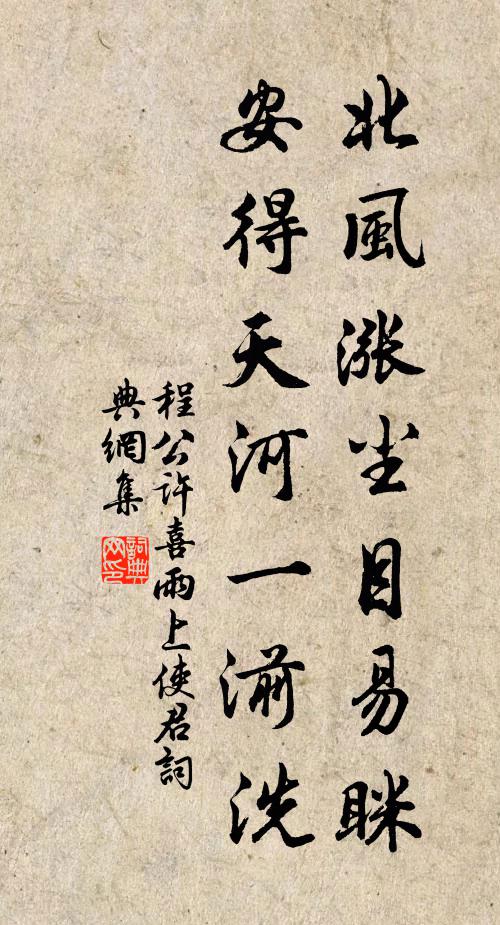 北風漲塵目易眯
安得天河一湔洗
程公許喜雨上使君詞
典網集
詞典網印